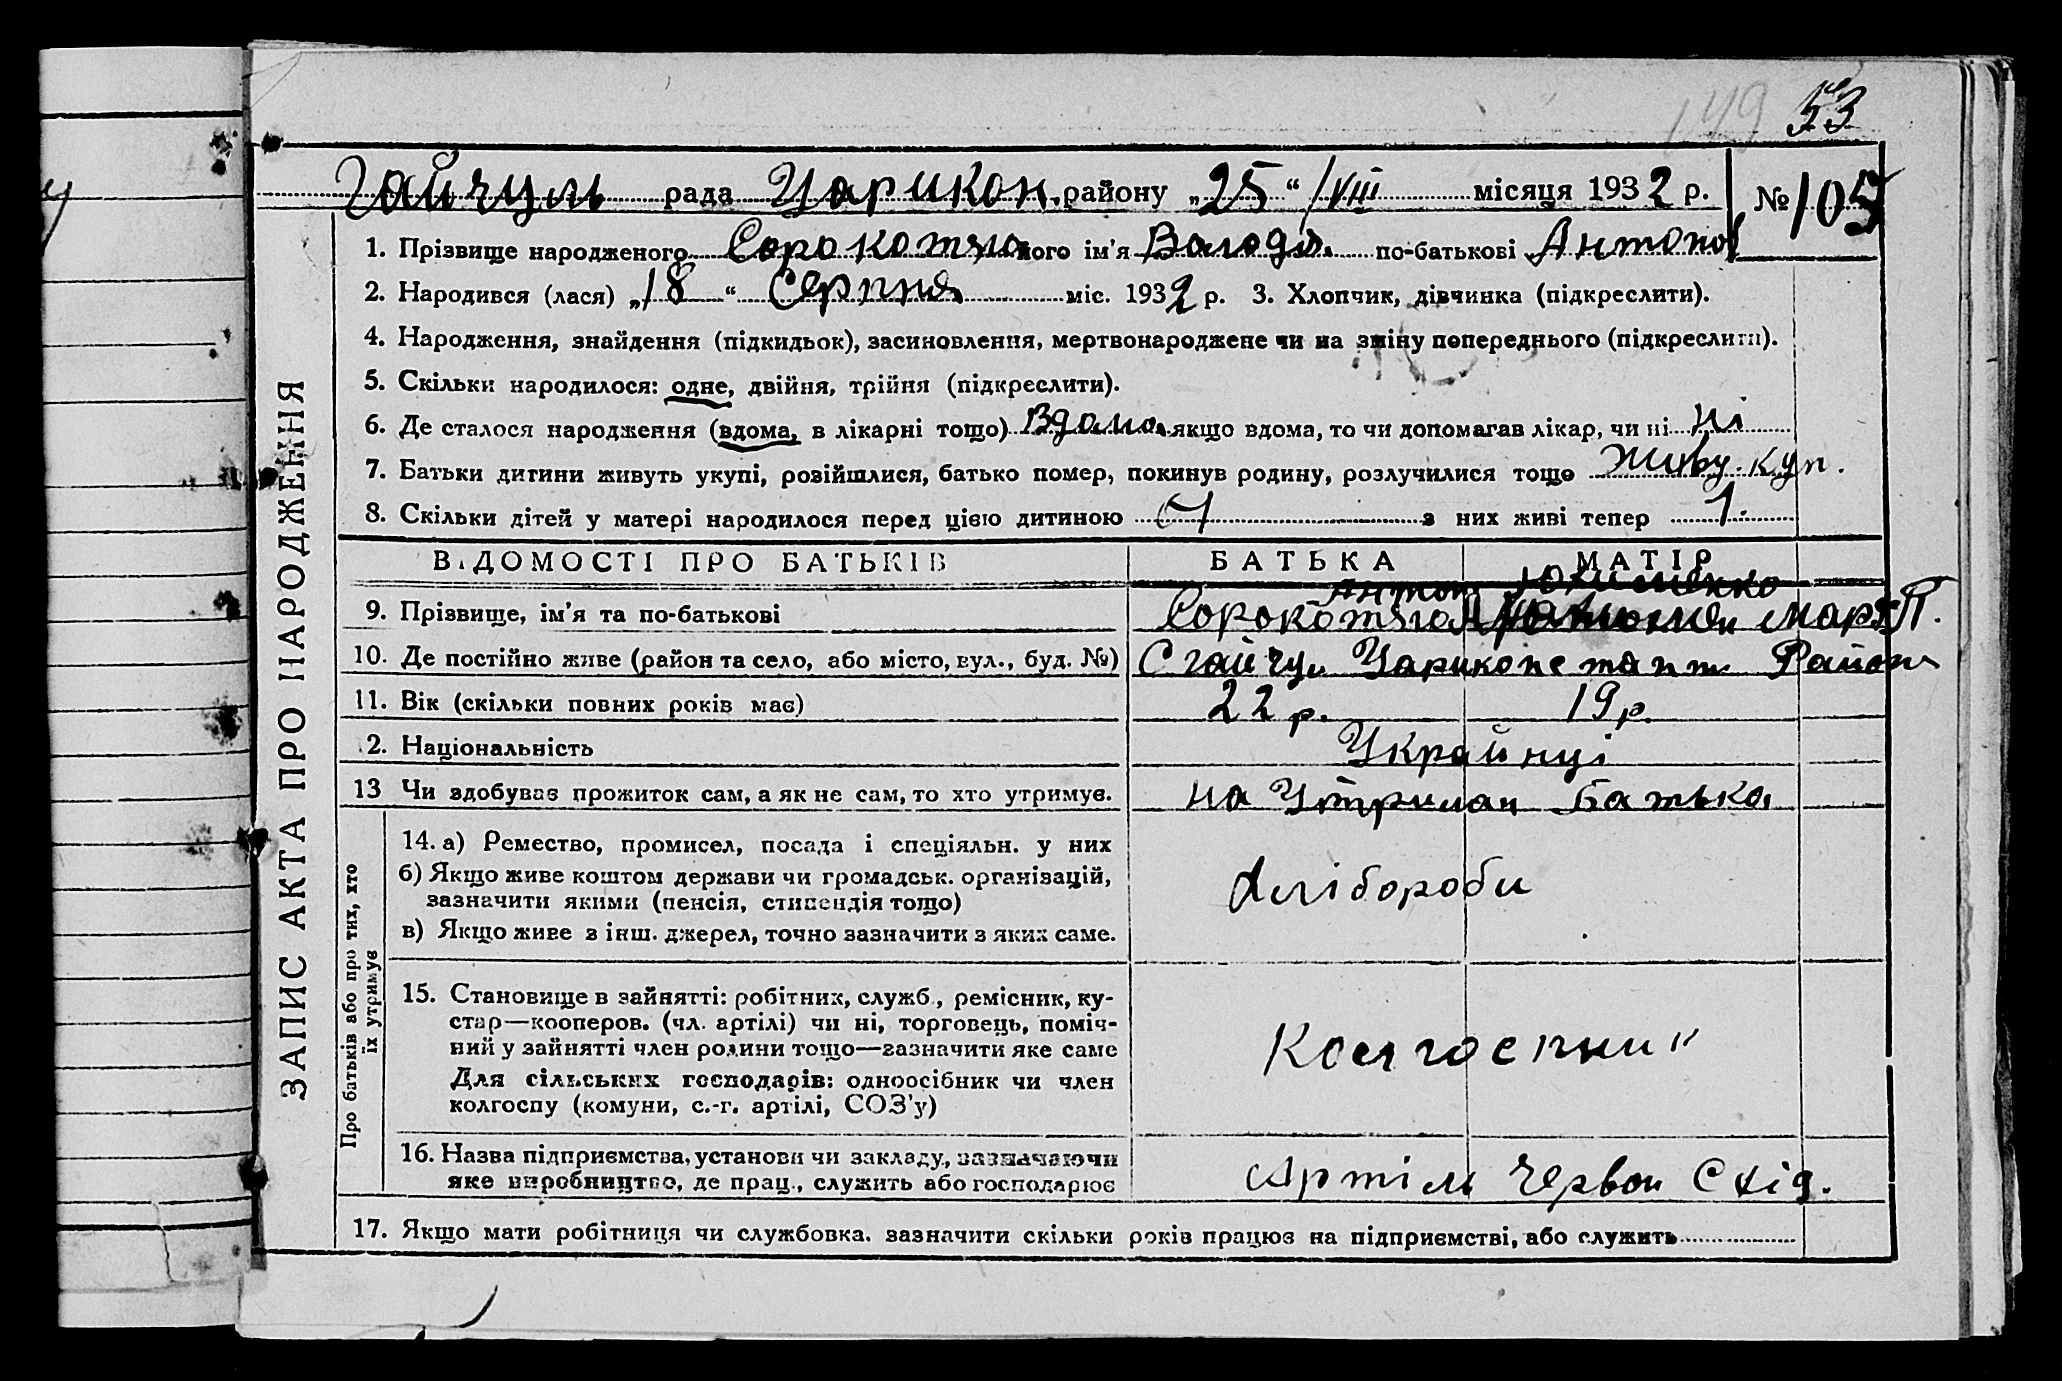 149 53
Гайчуль рада Царикон. району „25“ /VIII місяця 1932 р. № 105
1. Прізвище народженого Сорокотяга його ім’я Володя по-батькові Антонов
2. Народився (лася) „18“ Серпня міс. 1932 р. 3. Хлопчик, дівчинка (підкреслити).
4. Народження, знайдення (підкидьок), засиновлення, мертвонароджене чи на зміну попереднього (підкреслити).
5. Скільки народилося: одне, двійня, трійня (підкреслити).
6. Де сталося народження (вдома, в лікарні тощо) Вдома якщо вдома, то чи допомагав лікар, чи ні ні
7. Батьки дитини живуть укупі, розійшлися, батько помер, покинув родину, розлучилися тощо Живу. куп.
8. Скільки дітей у матері народилося перед цією дитиною з них живі тепер 1.
ЗАПИС АКТА ПРО НАРОДЖЕННЯ
ВІДОМОСТІ ПРО БАТЬКІВ БАТЬКА МАТІР
Антон Юхименко
9. Прізвище, ім’я та по-батькові Сорокотяга Мар П.
10. Де постійно живе (район та село, або місто, вул., буд. №) С гайчу Царикопстант Район
11. Вік (скільки повних років має) 22 р. 19 р.
12. Національність Украйнці
13 Чи здобуває прожиток сам, а як не сам, то хто утримує. на Утриман Батька
Про батьків або про тих, хто
їх утримує
14. а) Ремество, промисел, посада і спеціяльн. у них
б) Якщо живе коштом держави чи громадськ. організацій,
зазначити якими (пенсія, стипендія тощо)
в) Якщо живе з інш. джерел, точно зазначити з яких саме.
Хлібороби
15. Становище в зайнятті: робітник, служб., ремісник, ку-
стар—кооперов. (чл. артілі) чи ні, торговець, поміч-
ний у зайнятті член родини тощо—зазначити яке саме
Для сільських господарів: одноосібник чи член
колгоспу (комуни, с.-г. артілі, СОЗ’у)
Колгоспник
16. Назва підприємства, установи чи закладу, зазначаючи
яке виробництво, де прац., служить або господарює
Артіль Червон Схід.
17. Якщо мати робітниця чи службовка. зазначити скільки років працює на підприємстві, або служить